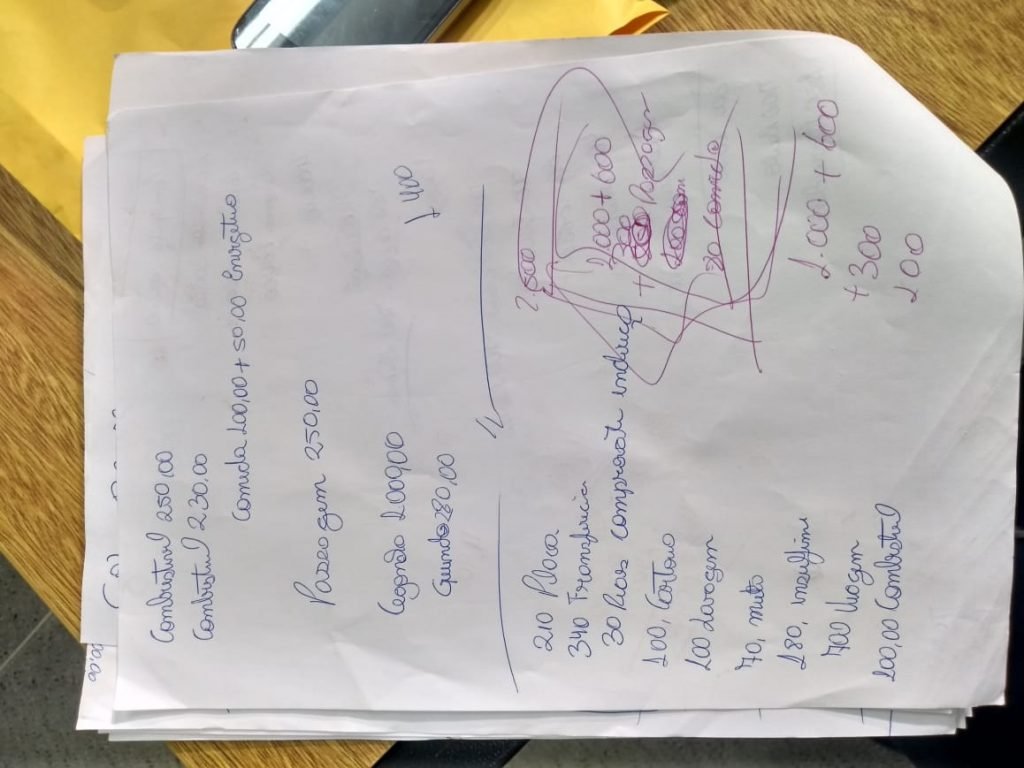 Combustivel 250,00
Combustivel 230.00
Comida 100,00 + 50,00 Energetico
Passagem 250,00
Segonda 100900
Quinda 80,00
1 400
210 Placa
340 Transferencia
30 Reais comprovate indereço
100, Cartorio
100 Lavagem
70, moto
180, insulfilme
700 Viagem
100,00 Combustivel
2.600
2000 + 600
+ 300 Passagem
20 Comida
1.000 + 600
+ 300
100
00,00